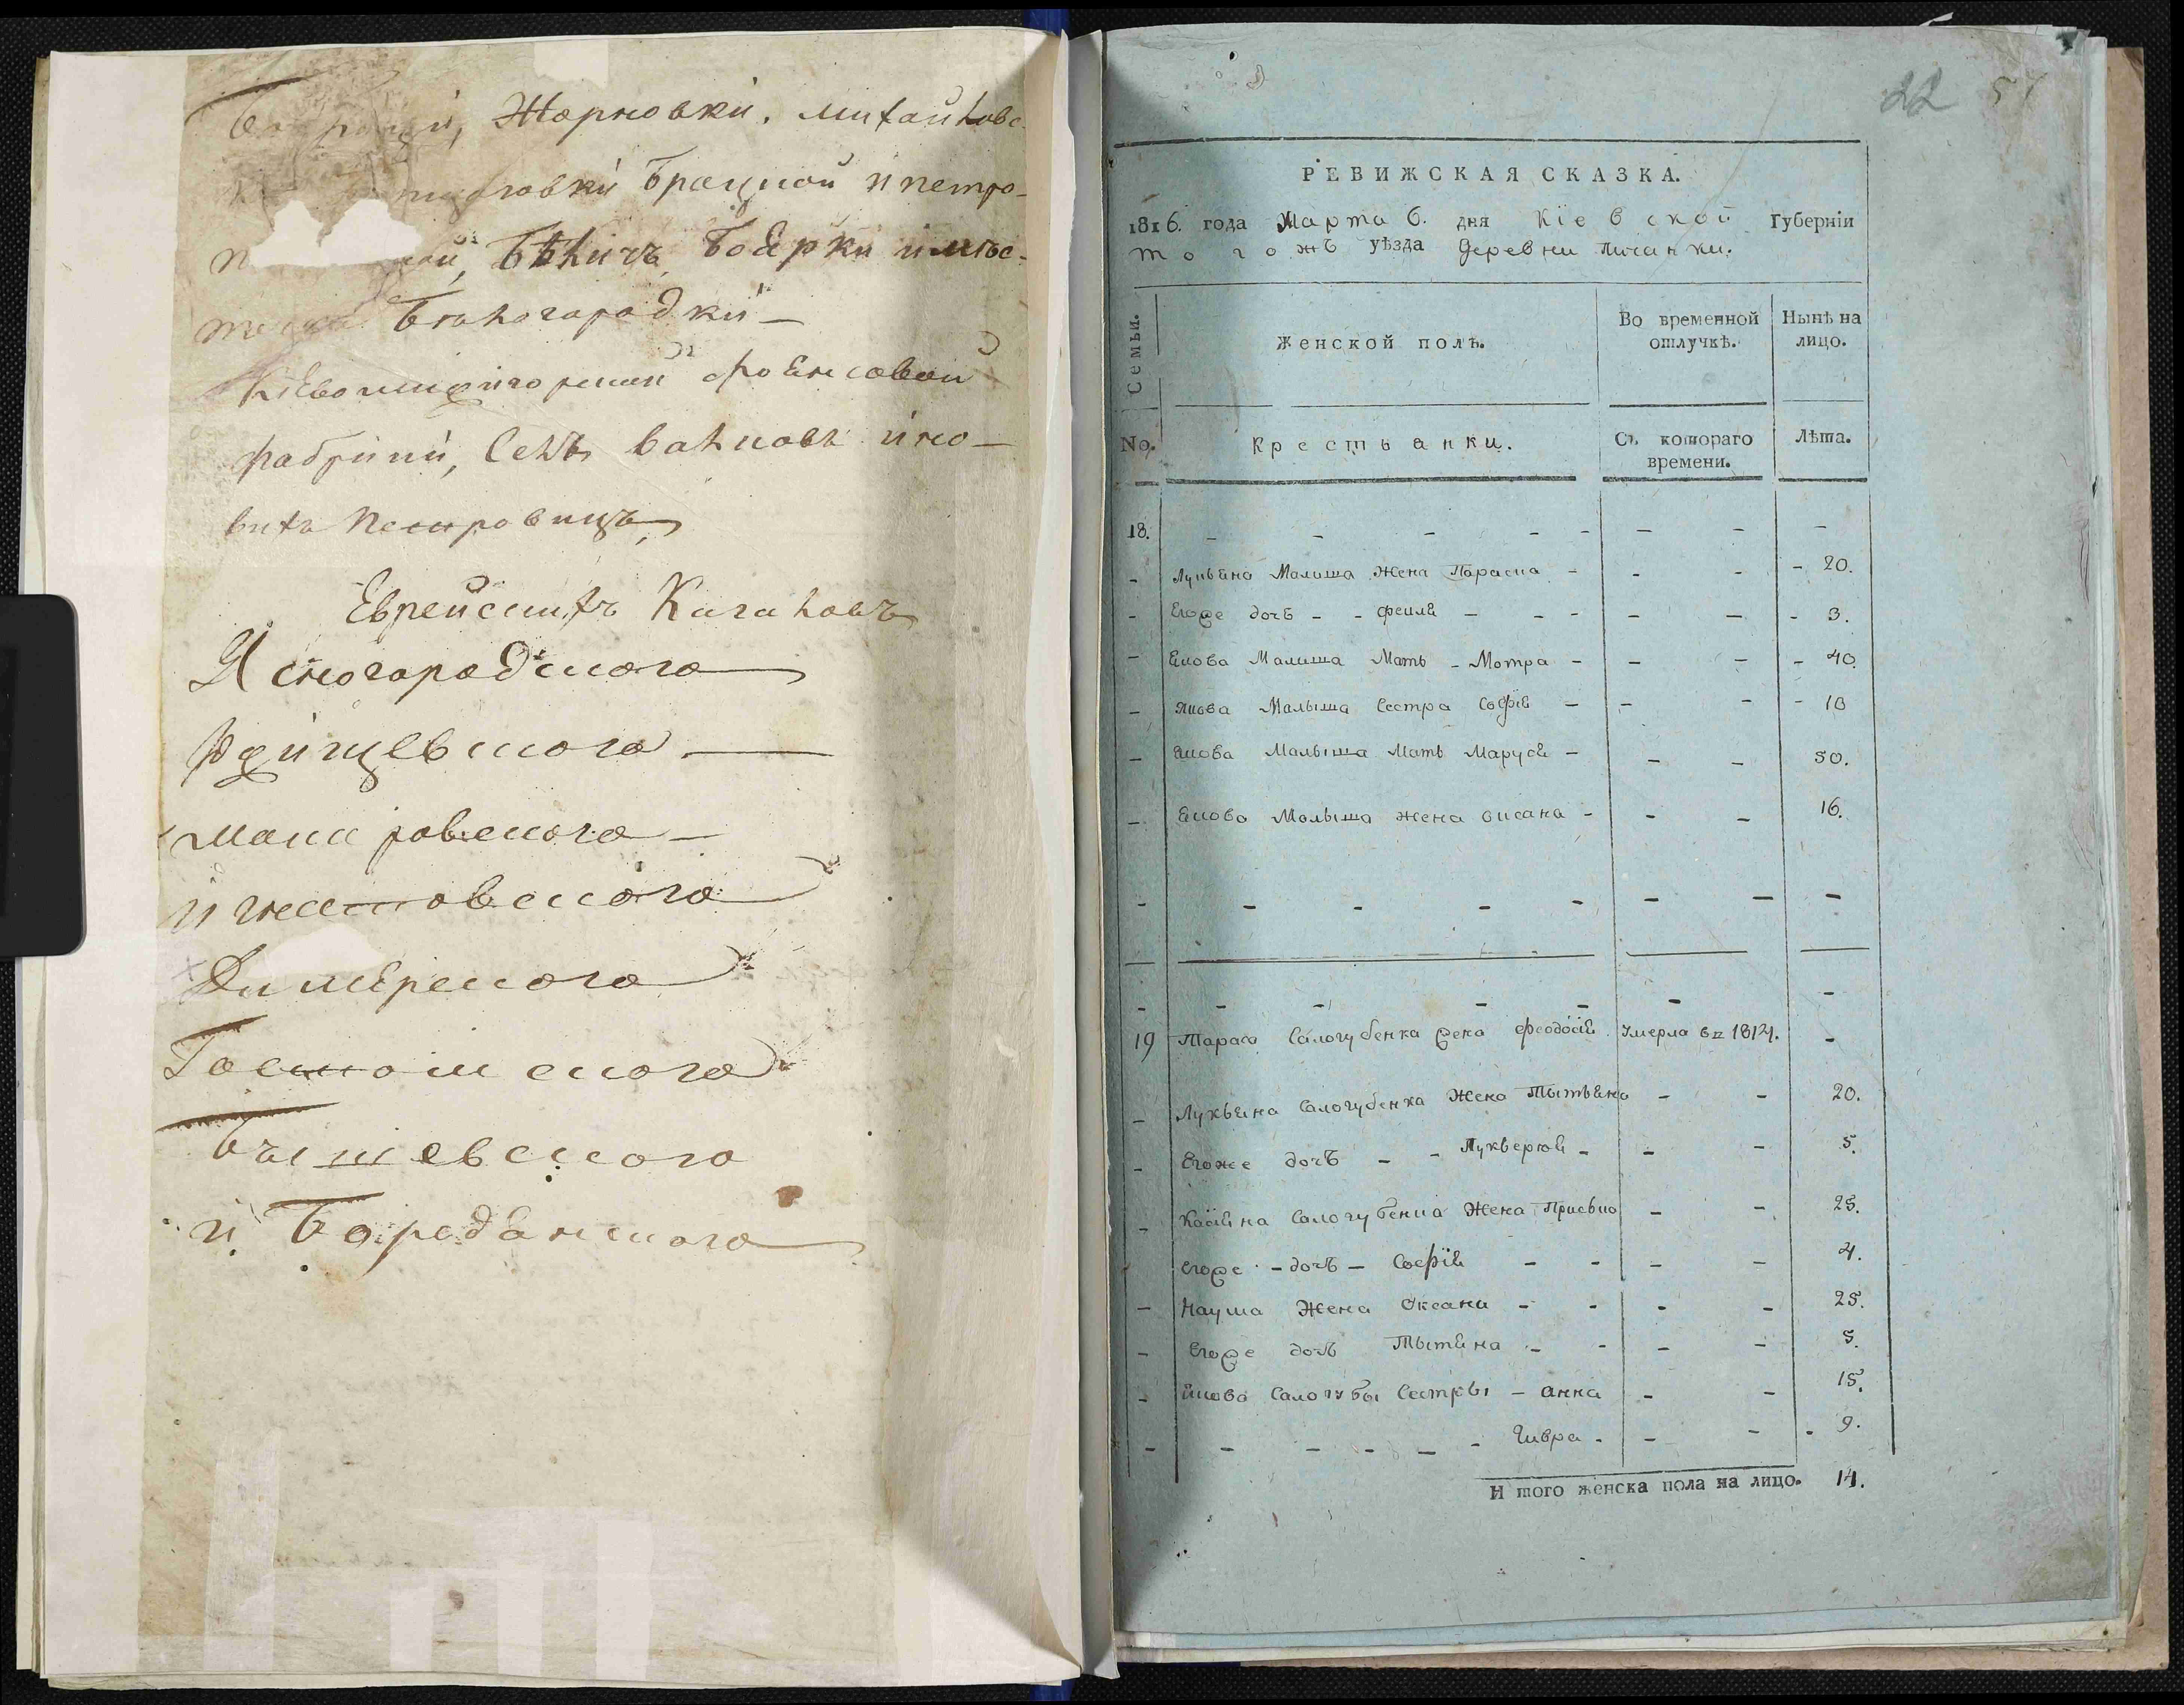 Жорновки, михайловс-
Брацкой и петро-
Бѣличъ, Боярки и мѣс-
течка Бѣлогородки —
Киевомежигорской фаянсовой
фабрики, Селъ Валковъ и но-
выхъ Петровицъ,
Еврейскихъ Кагаловъ
Ясногородского
Ржищевского —
макаровского —
и гностовского
Димерского
Гостомского
Бышевского
и Бородянского
22 51
РЕВИЖСКАЯ СКАЗКА.
1816. года Марта 6. дня Кіевской Губерніи
тогожъ уѣзда деревни Личанки.
Семьи. Женской полъ. Во временной отлучкѣ. Нынѣ на лицо.
No. Крестьянки. Съ котораго времени. Лѣта.
18. - - - - - - - -
- Лукьяна Малыша Жена Параска - - - - 20.
- Егоже дочь - - фекля - - - - - - 3.
- Якова Малиша Мать - Мотра - - - - 40.
- Якова Малыша Сестра Софія - - - - 10
- Якова Малыша Мать Маруся - - - 50.
- Якова Малыша жена Оксана - - - 16.
- - - - - - - -
- - - - - - -
19 Тараса Салогубенка жена феодосія Умерла въ 1814. -
- Лукьяна Салогубенка Жена Тытьяна - - 20.
- Егоже дочь - - Лукверія - - - 5.
- Касіяна Салогубенка Жена Приська - - 25.
егоже - дочь - Софія - - - - 4.
- Наума Жена Оксана - - - - 25.
- Егоже дочь Тытяна - - - - 5.
- Якова Салогубы Сестры - анна - - 15.
- - - - - - Гивра - - - - 9.
И того женска пола на лицо. 14.